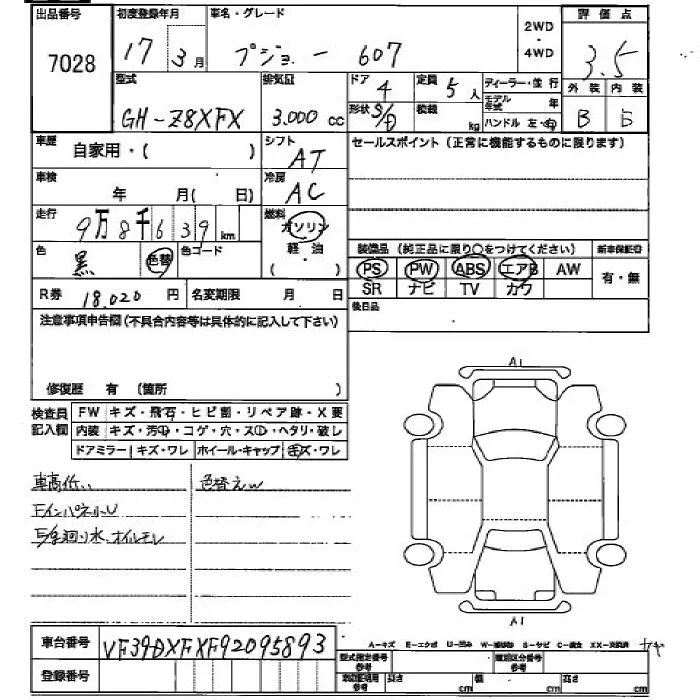 出品番号 初度登録年月 車名・グレード 2WD・4WD 評価点
7028 17年 3月 プジョー 607 3.5
型式 排気量 ドア 4 定員 5人 ディーラー・並行 外装 内装
GH-Z8XFX 3.000cc 形状 S/D 積載 kg モデル年式 ハンドル 左・右 B B
車歴 自家用・( ) シフト AT セールスポイント(正常に機能するものに限ります)
車検 年 月( 日) 冷房 AC
走行 9万8千639km 燃料 ガソリン
色 黒 色替 色コード 軽油・( ) 装備品(純正品に限り○をつけてください) 新車保証書
PS PW ABS エアB AW 有・無
R券 18.020円 名変期限 月 日 SR ナビ TV カワ
後日品
注意事項申告欄(不具合内容等は具体的に記入して下さい)
修復歴 有 (箇所 )
検査員記入欄 FW キズ・飛石・ヒビ割・リペア跡・X要
内装 キズ・汚中・コゲ・穴・ス中・ヘタリ・破レ
ドアミラー キズ・ワレ ホイール・キャップ キズ・ワレ
A1
車高低い 色替えw
Fインパネ小U
E/G廻り水、オイルモレ
A1
車台番号 VF39DXFXF92095893
A-キズ E-エクボ U-凹み S-サビ C-腐食
登録番号 型式指定番号参考 類別区分番号参考
長さ cm 幅 cm 高さ cm